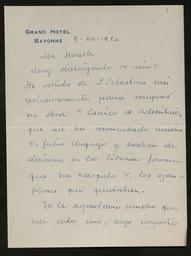 GRAND HOTEL
BAYONNE
5-XII-1920
Mr Herelle
Muy distinguido Sr mío:
He venido de S. Sebastian casi
exclusivamente para comprar
su obra "Canico et Beltchitine,
que me ha recomendado mucho
D. Julio Urquijo y acaban de
decirme en la librería
que ha recogido V. los ejem-
plares que quedaban.
Yo le agradecería mucho que
me ceda uno, cuyo importe